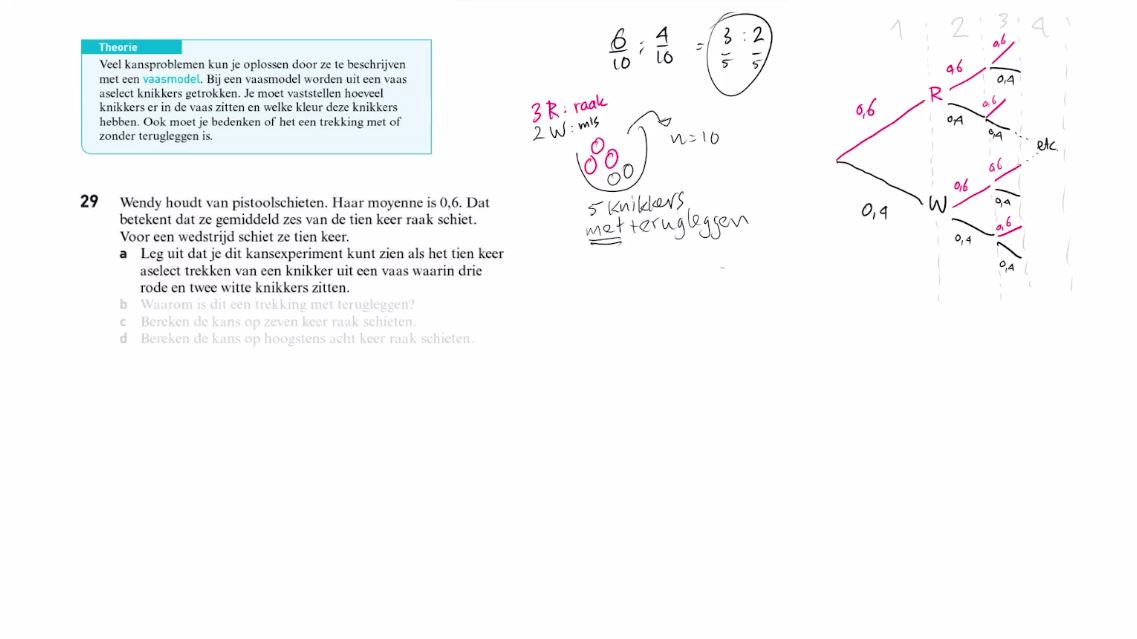 Theorie
Veel kansproblemen kun je oplossen door ze te beschrijven
met een vaasmodel. Bij een vaasmodel worden uit een vaas
aselect knikkers getrokken. Je moet vaststellen hoeveel
knikkers er in de vaas zitten en welke kleur deze knikkers
hebben. Ook moet je bedenken of het een trekking met of
zonder terugleggen is.
29 Wendy houdt van pistoolschieten. Haar moyenne is 0,6. Dat
betekent dat ze gemiddeld zes van de tien keer raak schiet.
Voor een wedstrijd schiet ze tien keer.
a Leg uit dat je dit kansexperiment kunt zien als het tien keer
aselect trekken van een knikker uit een vaas waarin drie
rode en twee witte knikkers zitten.
b Waarom is dit een trekking met terugleggen?
c Bereken de kans op zeven keer raak schieten.
d Bereken de kans op hoogstens acht keer raak schieten.
6/10 : 4/10 = 3/5 : 2/5
3 R : raak
2 W : mis
n = 10
5 knikkers
met terugleggen
1 2 3 4
0,6
0,6
0,6
0,4
R
0,6
0,4
0,4
etc.
0,6
0,6
0,4
W
0,4
0,6
0,4
0,4